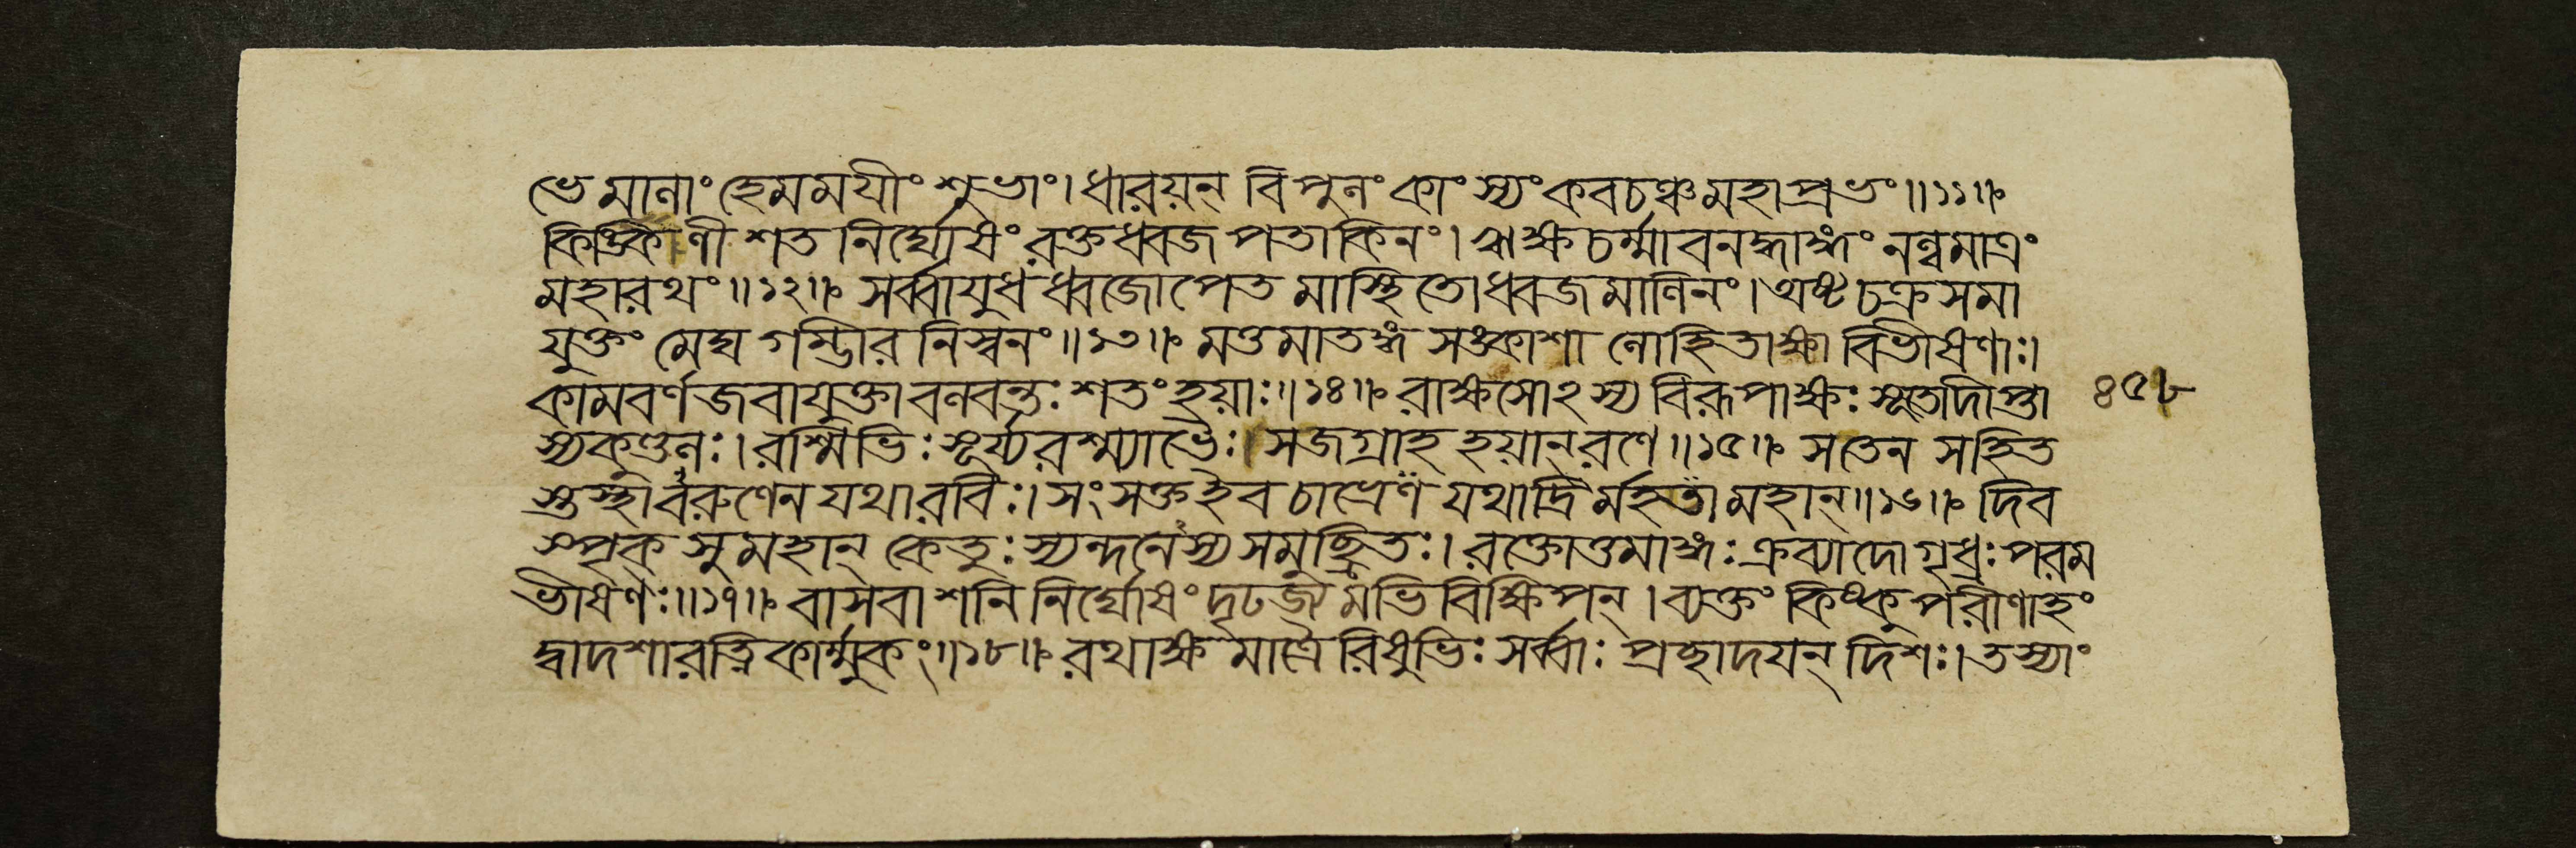 ভেমালাং হেমময়ীং শুভাং। ধারয়ন্ বিপুলং কাংস্যং কবচঞ্চ মহাপ্রভং॥১১॥
কিঙ্কিণী শত নির্ঘোষং রক্তধ্বজ পতাকিনং। ঋক্ষচর্ম্মাবনদ্ধাঙ্গং নল্বমাত্রং
মহারথং॥১২॥ সর্ব্বায়ুধ ধ্বজোপেত মাস্থিতো ধ্বজমালিনং। অষ্টচক্র সমা
যুক্তং মেঘ গম্ভীর নিস্বনং॥১৩॥ মত্তমাতঙ্গ সঙ্কাশা লোহিতাক্ষা বিভীষণাঃ।
কামবর্ণ জবা যুক্তা বলবন্তঃ শতং হয়াঃ॥১৪॥ রাক্ষসোঽস্য বিরূপাক্ষঃ সূতো দীপ্তা
স্যকুণ্ডলঃ। রশ্মিভিঃ সূর্য্যরশ্ম্যাভৈঃ। সজগ্রাহ হয়ান্ রণে॥১৫॥ স তেন সহিত
স্তস্থাবরুণেন যথা রবিঃ। সংসক্ত ইব চাভ্রেণ যথাদ্রির্মহতা মহান্॥১৬॥ দিব
স্পৃক্ সুমহান্ কেতুঃ স্যন্দনেঽস্য সমুচ্ছ্রিতঃ। রক্তোত্তমাঙ্গঃ ক্রব্যাদো গৃধ্রঃ পরম
ভীষণঃ॥১৭॥ বাসবাশনি নির্ঘোষং দৃঢজ্যমভিবিক্ষিপন্। ব্যক্তং কিষ্কুপরীণাহং
দ্বাদশারত্নি কার্ম্মুকং॥১৮॥ রথাক্ষমাত্রৈরিষুভিঃ সর্ব্বাঃ প্রচ্ছাদয়ন্ দিশঃ। তস্যাং
৪৫৮